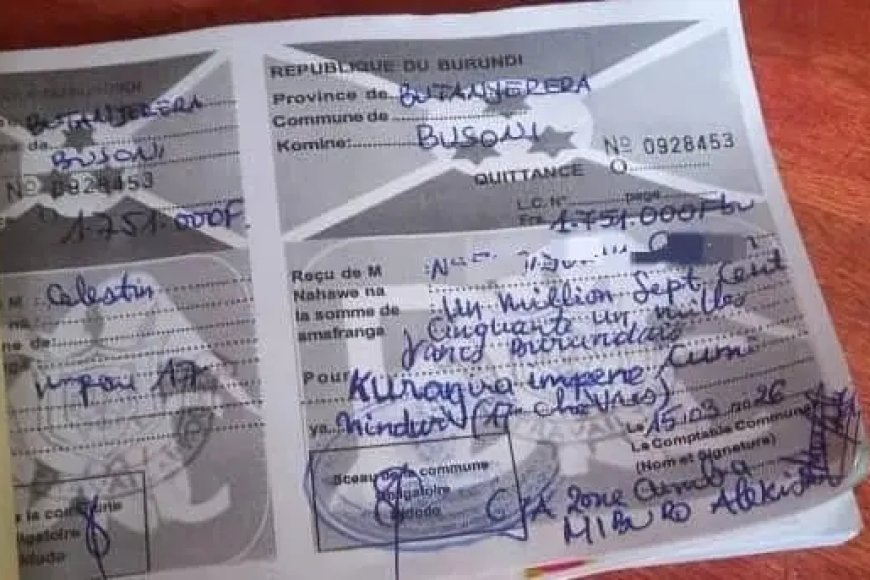 BURUNDI
BUTANYERERA
BUSONI
Nº 0928453
1.751.000F
Celestin
17
la commune
REPUBLIQUE DU BURUNDI
Province de BUTANYERERA
Commune de
Komine: BUSONI
Nº 0928453
QUITTANCE
L.C. N° page
Frs 1.751.000Fbu
Reçu de M
Nahawe na
la somme de Un million Sept Cent
amafranga Cinquante un milles
Francs Burundais
Pour Kuragura impene Cumi
ya Nindwi (17 chèvres)
Le 15.03.2026
Le Comptable Communal
(Nom et Signature)
Sceau de la commune
obligatoire
CPA Zone